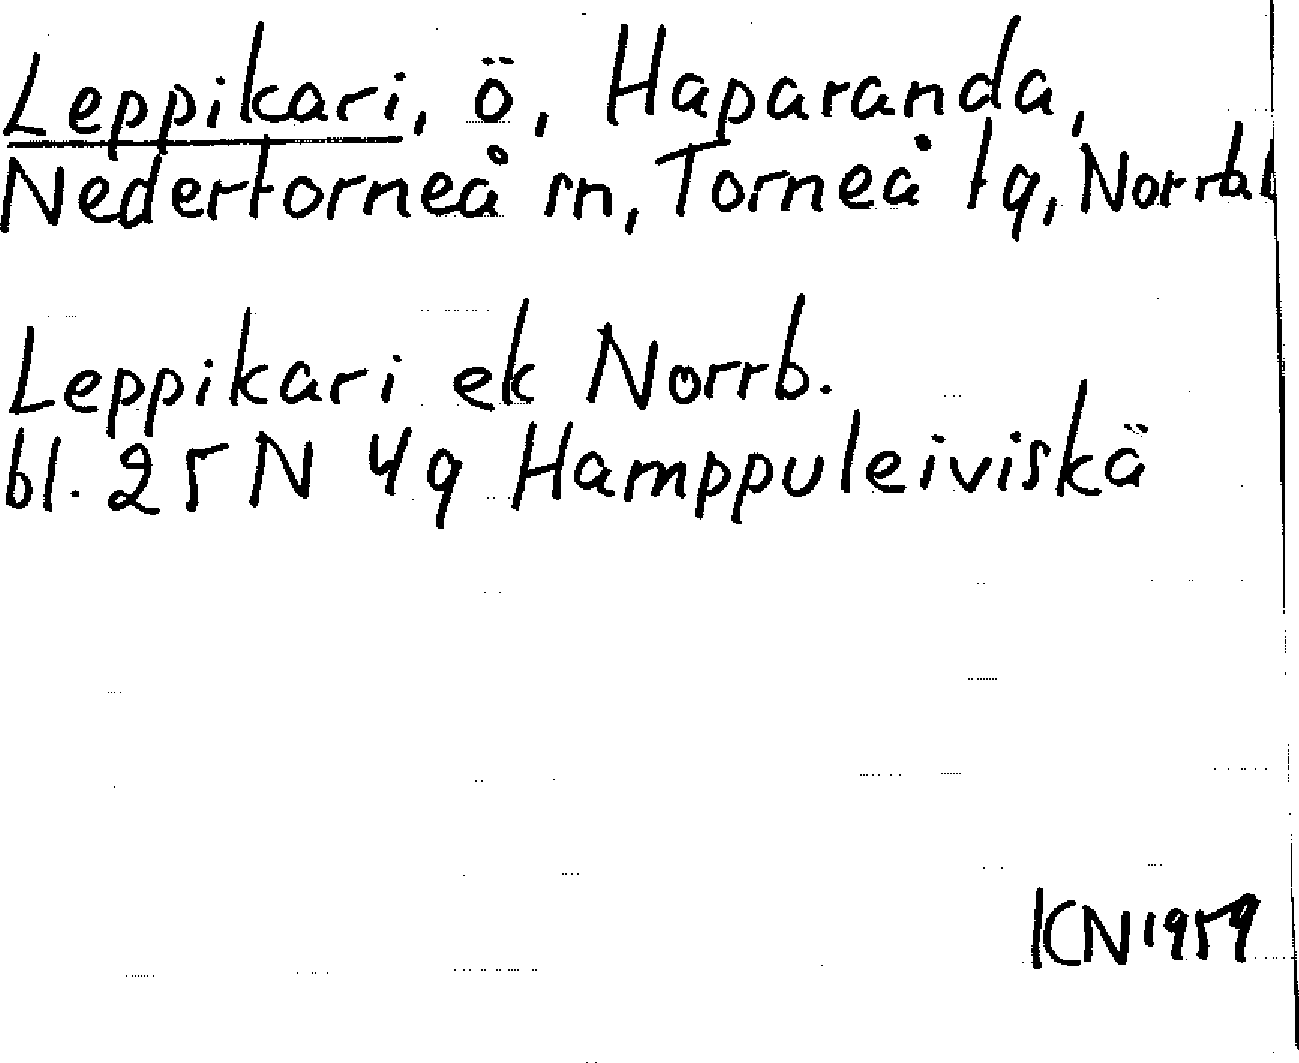 Leppikari, ö, Haparanda,
Nedertorneå sn, Torneå tg, Norrb. l
Leppikari ek Norrb.
bl. 25 N 4g Hamppuleiviskä
KN 1959